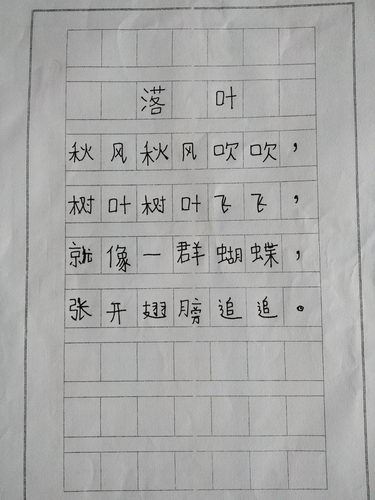 落叶
秋风秋风吹吹，
树叶树叶飞飞，
就像一群蝴蝶，
张开翅膀追追。